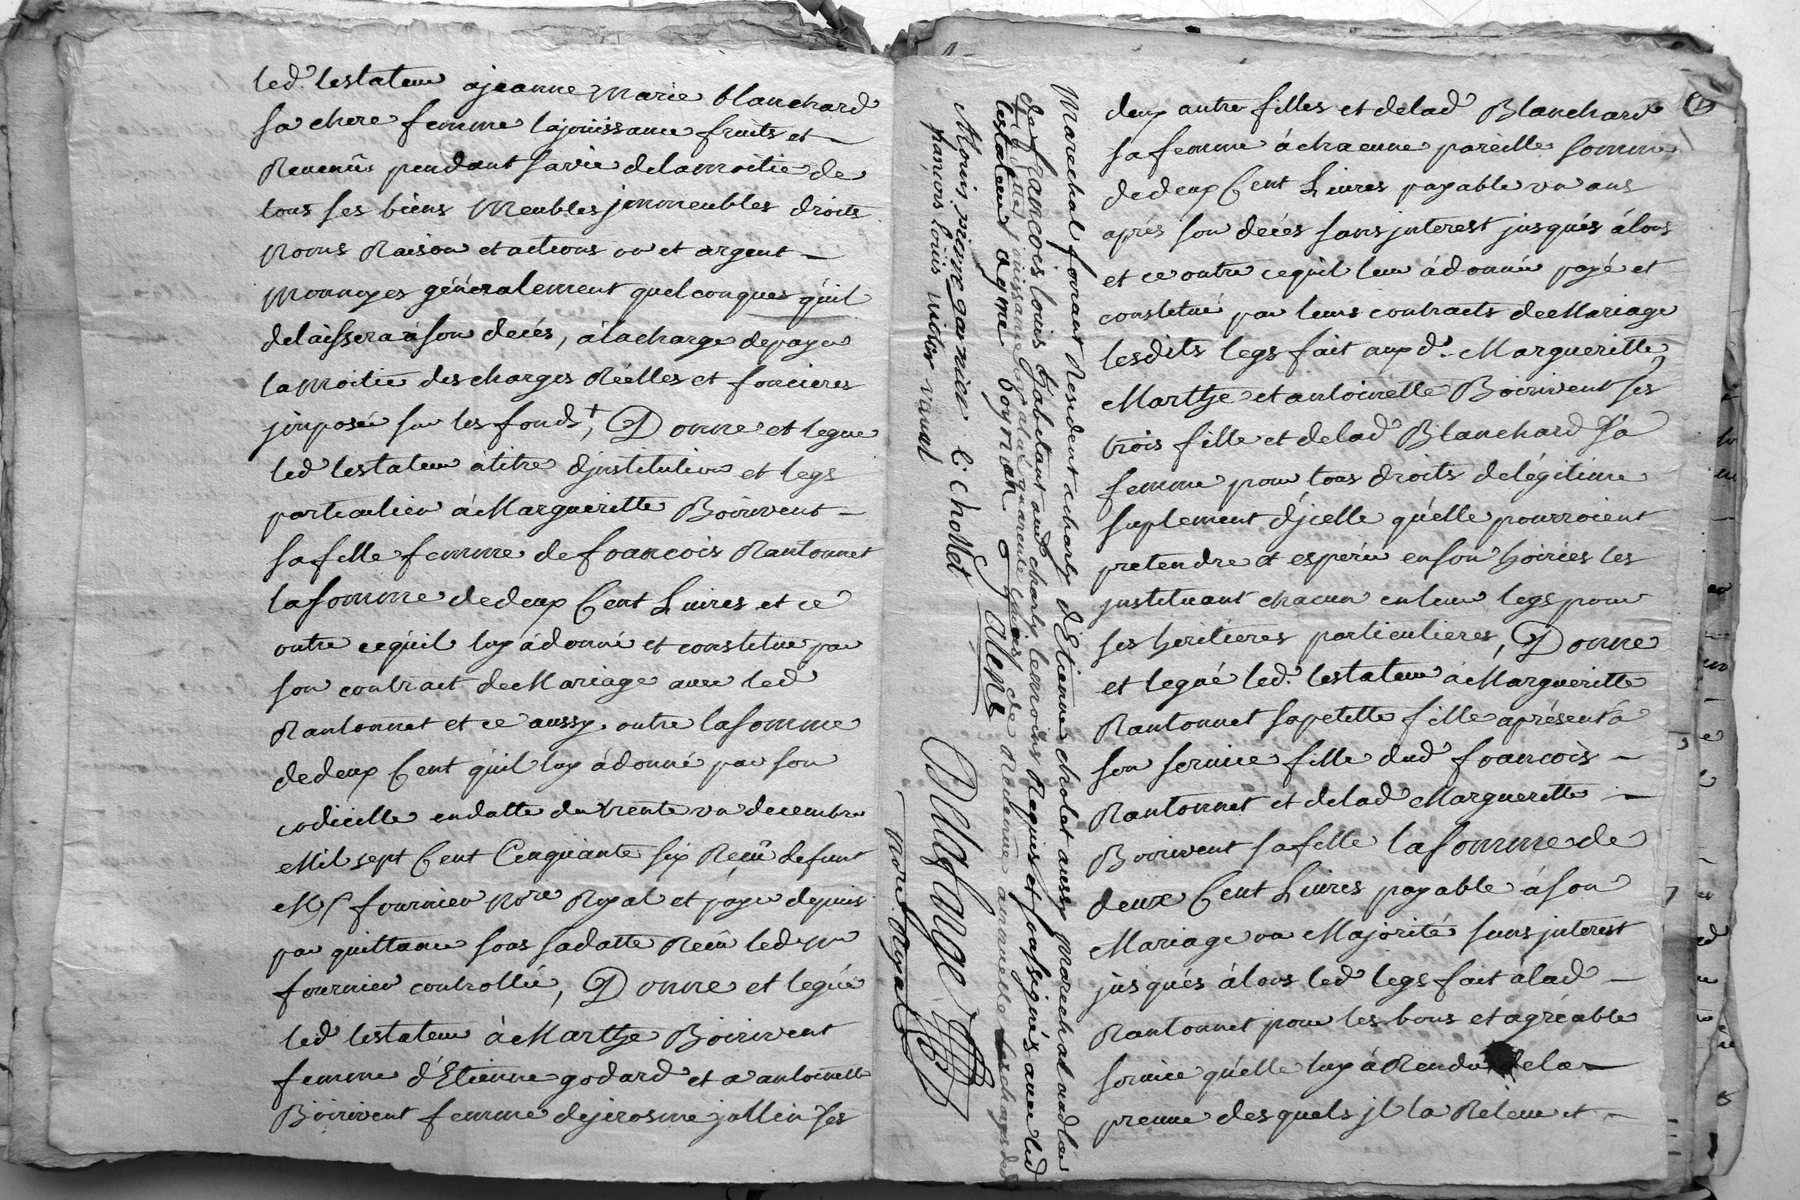 led. testateur a jeanne marie blanchard
sa chere femme la jouissance fruits et
Revenûs pendant sa vie de la moitie de
tous ses biens Meubles jmmeubles droits
Noms Raison et actions or et argent
Monnoyes généralement quelconques qu'il
delaissera a son decés, a la charge de payer
la moitie des charges Réelles et foncieres
jmposée sur les fonds, Donne et legue
led testateur a titre d'jnstitution et legs
particulier á Margueritte Boirivent
sa fille femme de francois Rantonnet
la somme de deux Cent Livres et ce
outre ce quil luy á donné et constitue par
son contract de Mariage avec led
Rantonnet et ce aussy outre la somme
de deux Cent qu'il luy á donné par son
codicille en datte du trente un decembre
Mil sept Cent Cinquante six Reçû defunt
Me fournier nore Royal et payé depuis
par quittance sous sa datte Recû led me
fournier controllée, Donne et legue
led testateur á Marthe Boirivent
femme d'Etienne godard et a antoinette
Boirivent femme de jerosme jullien ses
Marechal ferrant Resident a charly d'Etienne cholat aussy marechal audit lieu
de francois louis habitant aud charly temoins Requis et soussignés avec led
testateur
jouissance
quarante
de Revenue annuelle les charges ded
agme boyron
Alouis pierre garnier
C: chollet
Galene
francois louis nictor vanal
Dellafange
nore. Royal
deux autre filles et de lad Blanchard
sa femme á chacune pareille somme
de deux Cent Livres payable un ans
aprés son decés sans jnterest jusqués álors
et ce outre ce quil leur á donné payé et
constitué par leurs contracts de Mariage
lesdits legs fait aux d. Margueritte,
Marthe et antoinette Boirivent ses
trois fille et de lad Blanchard sa
femme pour tous droits de légitime
suplement d'jcelle qu'elle pourroient
pretendre et esperer en son hoiries les
jnstituant chacun en leur legs pour
ses heritieres particulieres, Donne
et legué led. testateur á Margueritte
Rantonnet sa petitte fille aprésent á
son service fille dud francois
Rantonnet et de lad Margueritte
Boirivent sa fille la somme de
deux Cent Livres payable á son
Mariage ou Majorité sans jnterest
jusqués álors led legs fait á lad
Rantonnet pour les bons et agréable
service qu'elle luy á Rendu de la
preuve des quels jl la Releve et